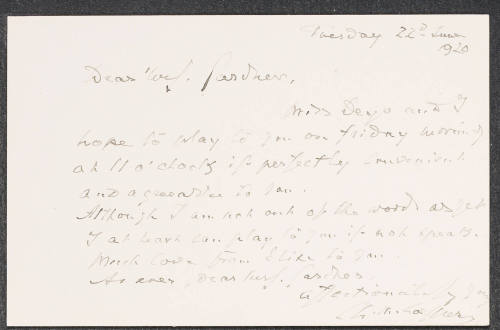 Tuesday 22nd June
1920
Dear Mrs. Gardner,
Miss Deyo and I
hope to play to you on Friday morning
at 11 o'clock if perfectly convenient
and agreeable to you.
Although I am not out of the woods as yet
I at least can play to you if not speak.
Much love from Elise to you.
As ever, dear Mrs. Gardner
affectionately yrs